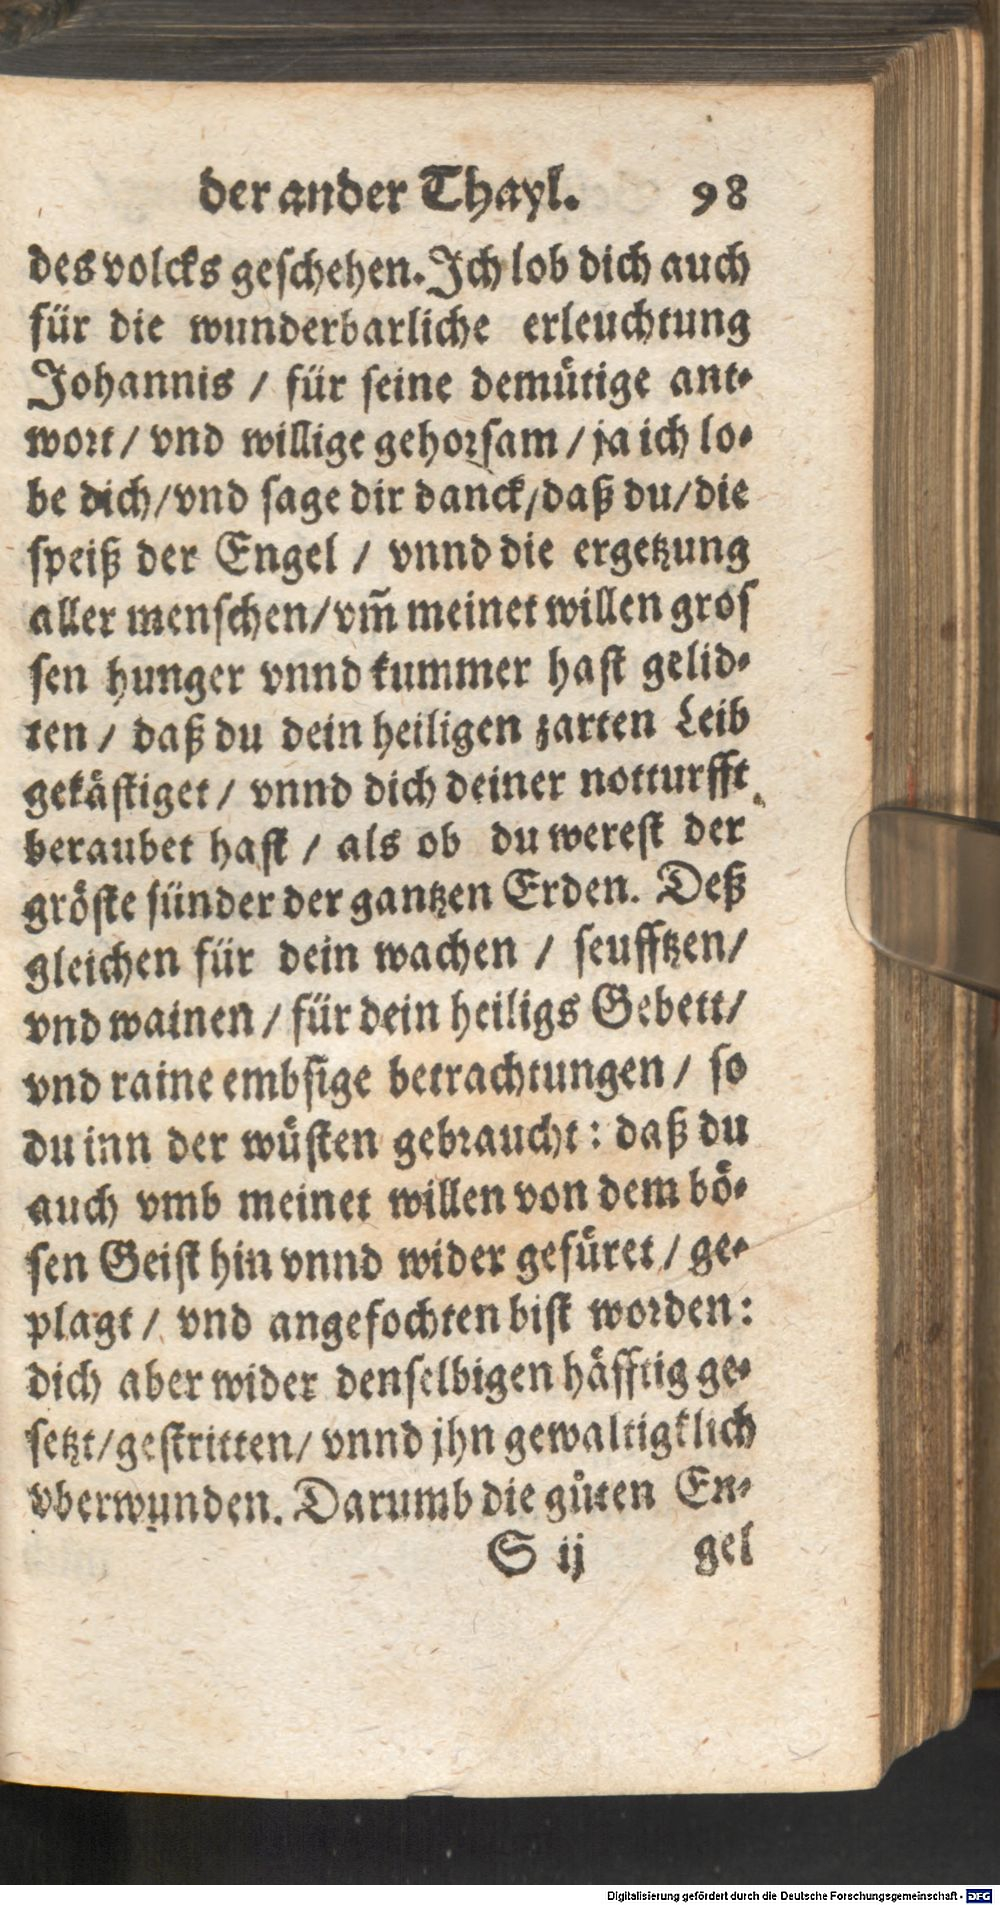 der ander Thayl. 98
des volcks geschehen. Ich lob dich auch
für die wunderbarliche erleuchtung
Johannis / für seine demütige ant⸗
wort / vnd willige gehorsam / ja ich lo⸗
be dich / vnd sage dir danck / daß du / die
speiß der Engel / vnnd die ergetzung
aller menschen / vm̃ meinet willen gros
sen hunger vnnd kummer hast gelid⸗
ten / daß du dein heiligen zarten Leib
gekästiget / vnnd dich deiner notturfft
beraubet hast / als ob du werest der
gröste sünder der gantzen Erden. Deß
gleichen für dein wachen / seufftzen /
vnd wainen / für dein heiligs Gebett /
vnd raine embsige betrachtungen / so
du inn der wüsten gebraucht : daß du
auch vmb meinet willen von dem bö⸗
sen Geist hin vnnd wider gefüret / ge⸗
plagt / vnd angefochten bist worden :
dich aber wider denselbigen häfftig ge⸗
setzt / gestritten / vnnd jhn gewaltigklich
vberwunden. Darumb die gůten En⸗
S ij gel
Digitalisierung gefördert durch die Deutsche Forschungsgemeinschaft - DFG